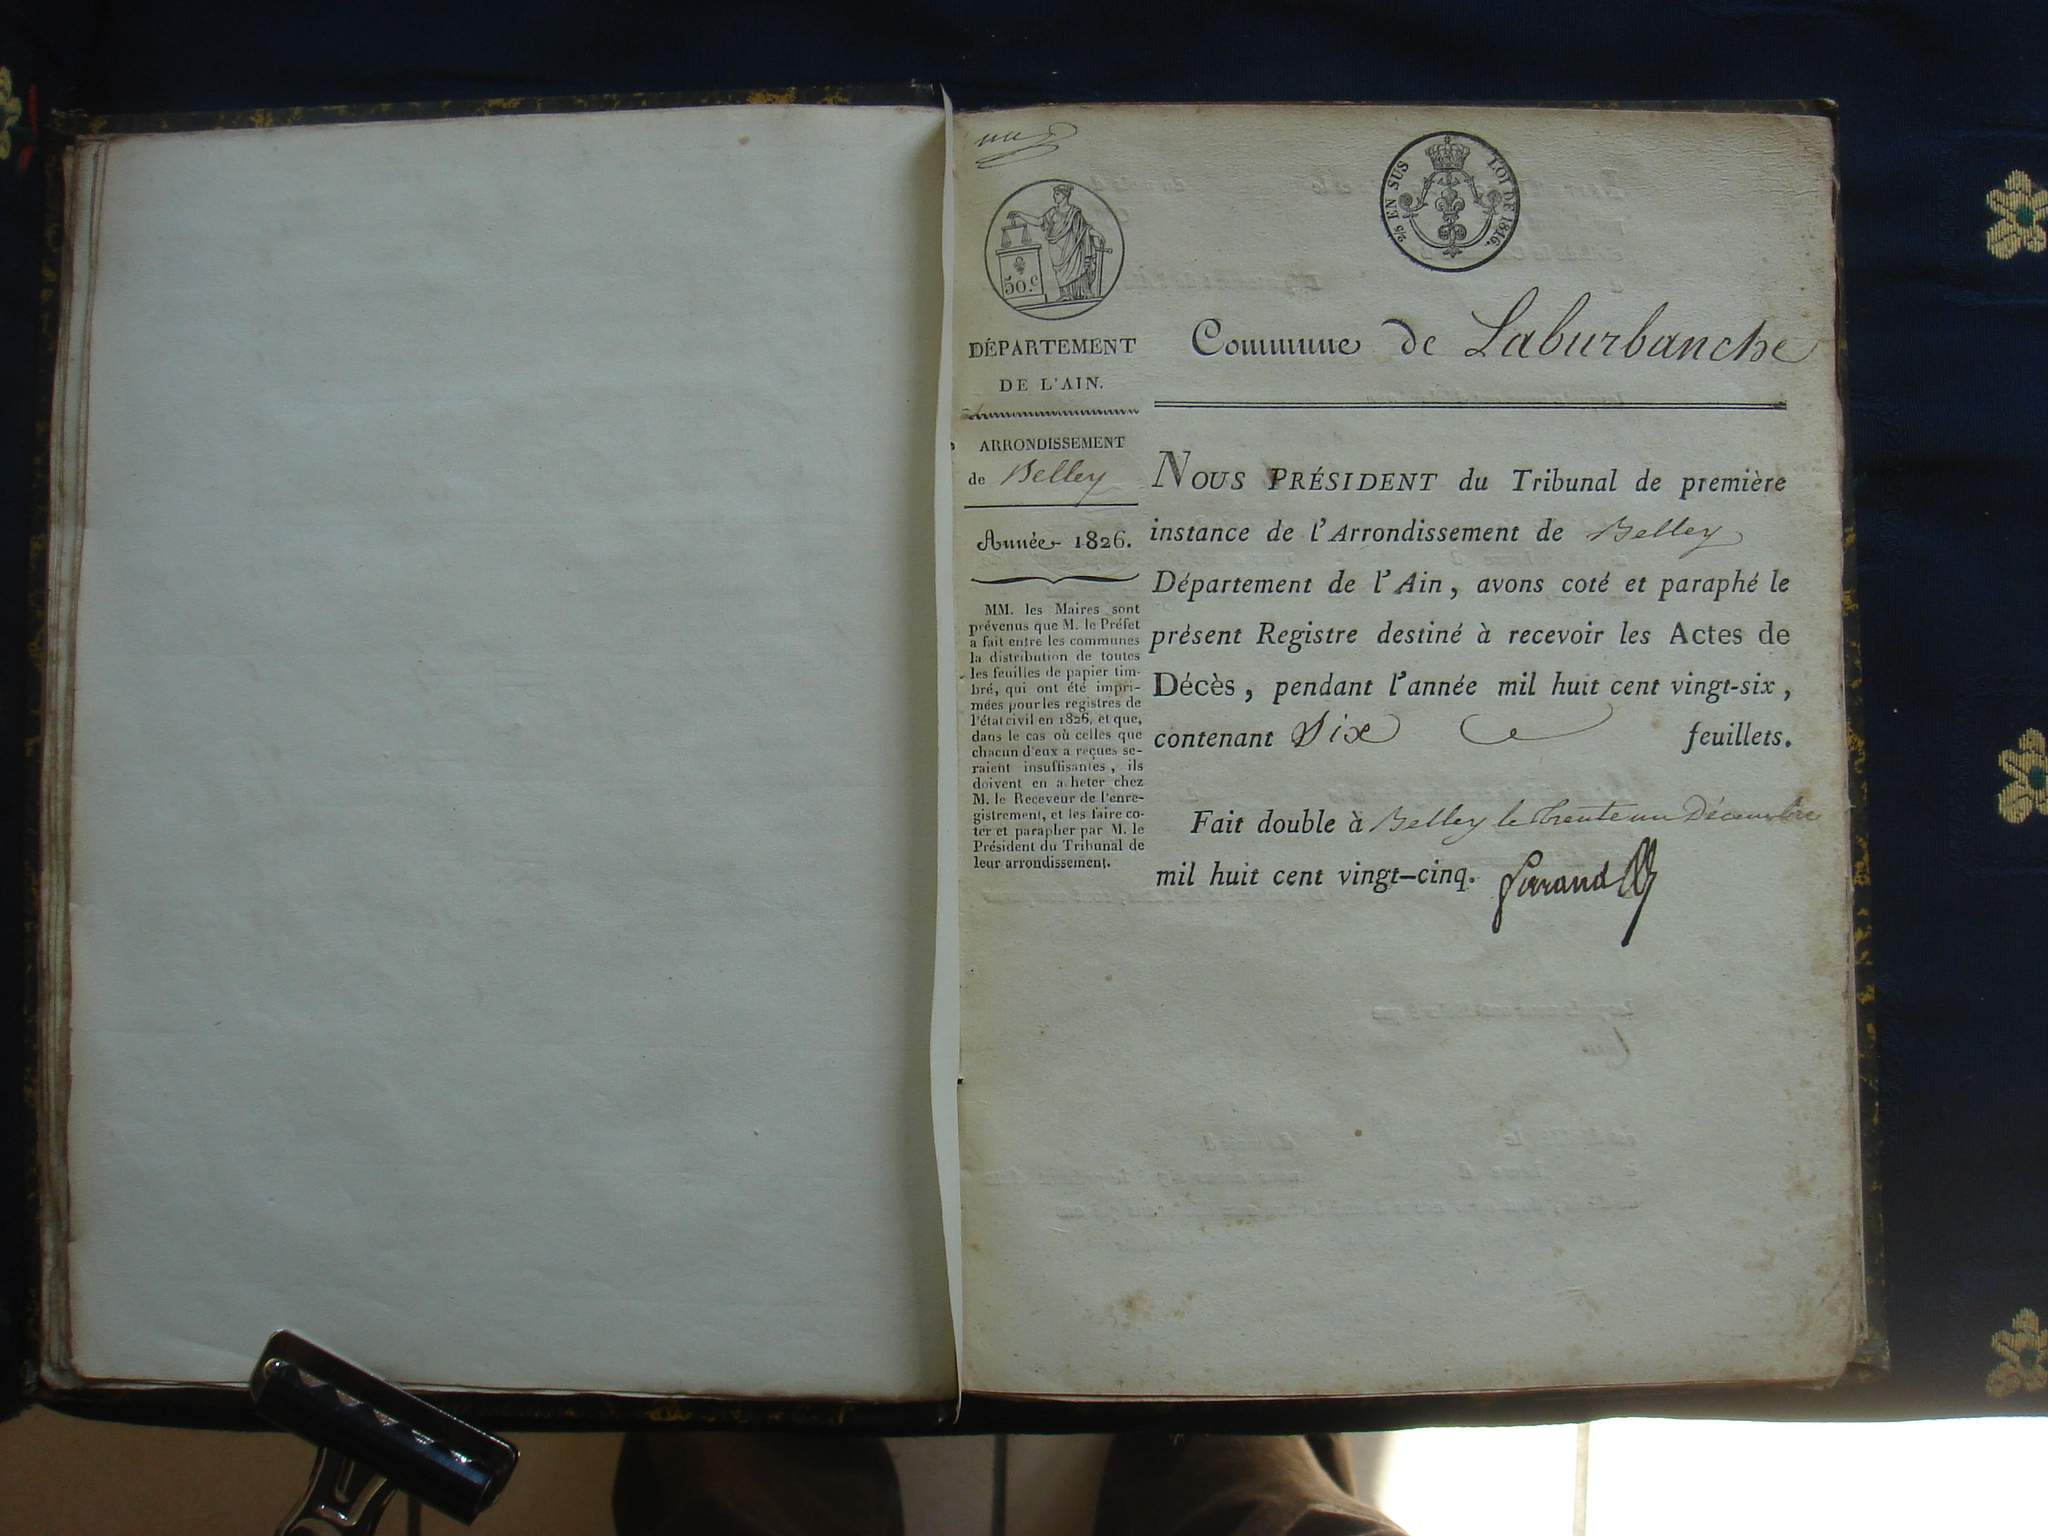 50.c
2/5 EN SUS LOI DE 1816.
DÉPARTEMENT
DE L'AIN.
ARRONDISSEMENT
de Belley
Année 1826.
MM. les Maires sont
prévenus que M. le Préfet
a fait entre les communes
la distribution de toutes
les feuilles de papier tim-
bré, qui ont été impri-
mées pour les registres de
l'état civil en 1826, et que,
dans le cas où celles que
chacun d'eux a reçues se-
raient insuffisantes, ils
doivent en acheter chez
M. le Receveur de l'enre-
gistrement, et les faire co-
ter et parapher par M. le
Président du Tribunal de
leur arrondissement.
Commune de Laburbanche
NOUS PRÉSIDENT du Tribunal de première
instance de l'Arrondissement de Belley
Département de l'Ain, avons coté et paraphé le
présent Registre destiné à recevoir les Actes de
Décès, pendant l'année mil huit cent vingt-six,
contenant Six feuillets.
Fait double à Belley le trente un Décembre
mil huit cent vingt-cinq.